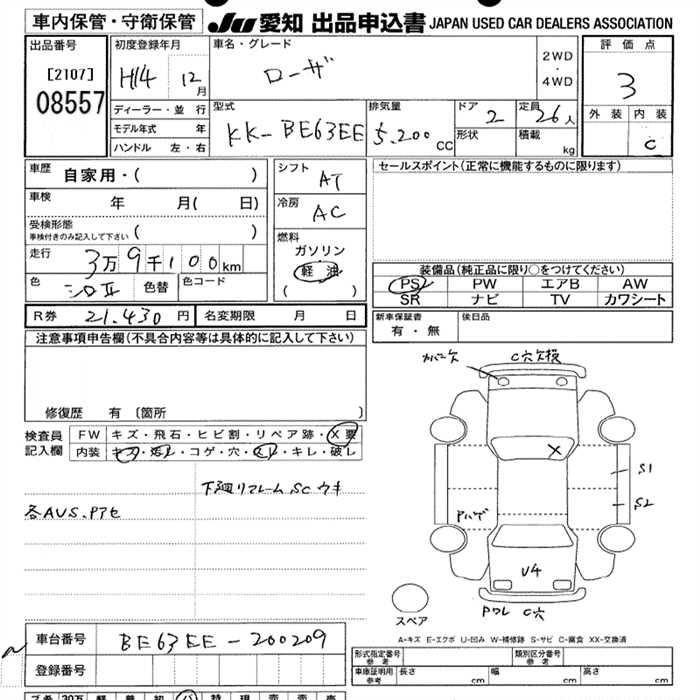 車内保管・守衛保管 JU 愛知 出品申込書 JAPAN USED CAR DEALERS ASSOCIATION
出品番号 初度登録年月 車名・グレード 2WD・4WD 評価点
[2107] H14 12月 ローザ 3
08557 外装 内装
ディーラー・並行 型式 排気量 ドア 定員
モデル年式 年 KK-BE63EE 5.200 CC 2 26人 C
ハンドル 左・右 形状 積載 kg
車歴 自家用・( ) シフト AT セールスポイント(正常に機能するものに限ります)
車検 年 月( 日) 冷房 AC
受検形態 ( )
車検付きのみ記入して下さい
燃料
走行 3万9千100km ガソリン
軽油
( )
色 シロⅡ 色替 色コード
装備品(純正品に限り○をつけてください)
PS PW エアB AW
SR ナビ TV カワシート
R券 21.430円 名変期限 月 日
新車保証書 後日品
有・無
注意事項申告欄(不具合内容等は具体的に記入して下さい)
修復歴 有 [箇所 ]
検査員記入欄 FW キズ・飛石・ヒビ割・リペア跡・X要
内装 キズ・汚レ・コゲ・穴・スレ・キレ・破レ
下廻リフレームSCウキ
各AUS.Pアセ
カバー欠 C穴欠損
X
S1
S2
Pハゲ
U4
Pワレ C穴
スペア
A-キズ E-エクボ U-凹み W-補修跡 S-サビ C-腐食 XX-交換済
車台番号 BE63EE-200209
登録番号
形式指定番号 参考 類別区分番号 参考
車庫証明用 参考 長さ cm 幅 cm 高さ cm